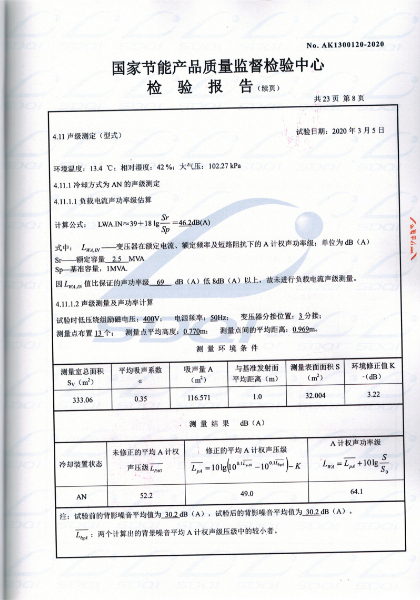 No. AK1300120-2020
国家节能产品质量监督检验中心
检 验 报 告(续页)
共 23 页 第 8 页
4.11 声级测定（型式）
试验日期：2020 年 3 月 5 日
环境温度：13.4 ℃；相对湿度：42 %；大气压：102.27 kPa
4.11.1 冷却方式为 AN 的声级测定
4.11.1.1 负载电流声功率级估算
计算公式： LWA.IN≈39+18 lg Sr/Sp =46.2dB(A)
式中： L_WA,IN ——变压器在额定电流、额定频率及短路阻抗下的 A 计权声功率级；单位为 dB（A）
Sr——额定容量 2.5 MVA
Sp—基准容量，1MVA.
因 L_WA,IN 值比保证的声功率级 69 dB（A）低 8dB（A）以上，故未进行负载电流声级测量。
4.11.1.2 声级测量及声功率计算
试验时低压绕组励磁电压：400V； 电源频率：50Hz； 变压器分接位置：3 分接；
测量点布置 13 个； 测量点平均高度：0.770m； 测量点间的平均距离：0.969m。
测 量 环 境 条 件
测量室总面积 S_V（m²） 平均吸声系数 α 吸声量 A （m²） 与基准发射面 平均距离（m） 测量表面面积 S （m²） 环境修正值 K （dB）
333.06 0.35 116.571 1.0 32.004 3.22
测 量 结 果 dB（A）
冷却装置状态 未修正的平均 A 计权 声压级 L_PA0 修正的平均 A 计权声压级 L_pA = 10 lg(10^0.1L_pA0 − 10^0.1L_bgA) − K A 计权声功率级 L_WA = L_pA + 10 lg S/S₀
AN 52.2 49.0 64.1
注：试验前的背影噪音平均值为 30.2 dB（A），试验后的背影噪音平均值为 30.2 dB（A），
L_bgA：两个计算出的背景噪音平均 A 计权声级压级中的较小者。